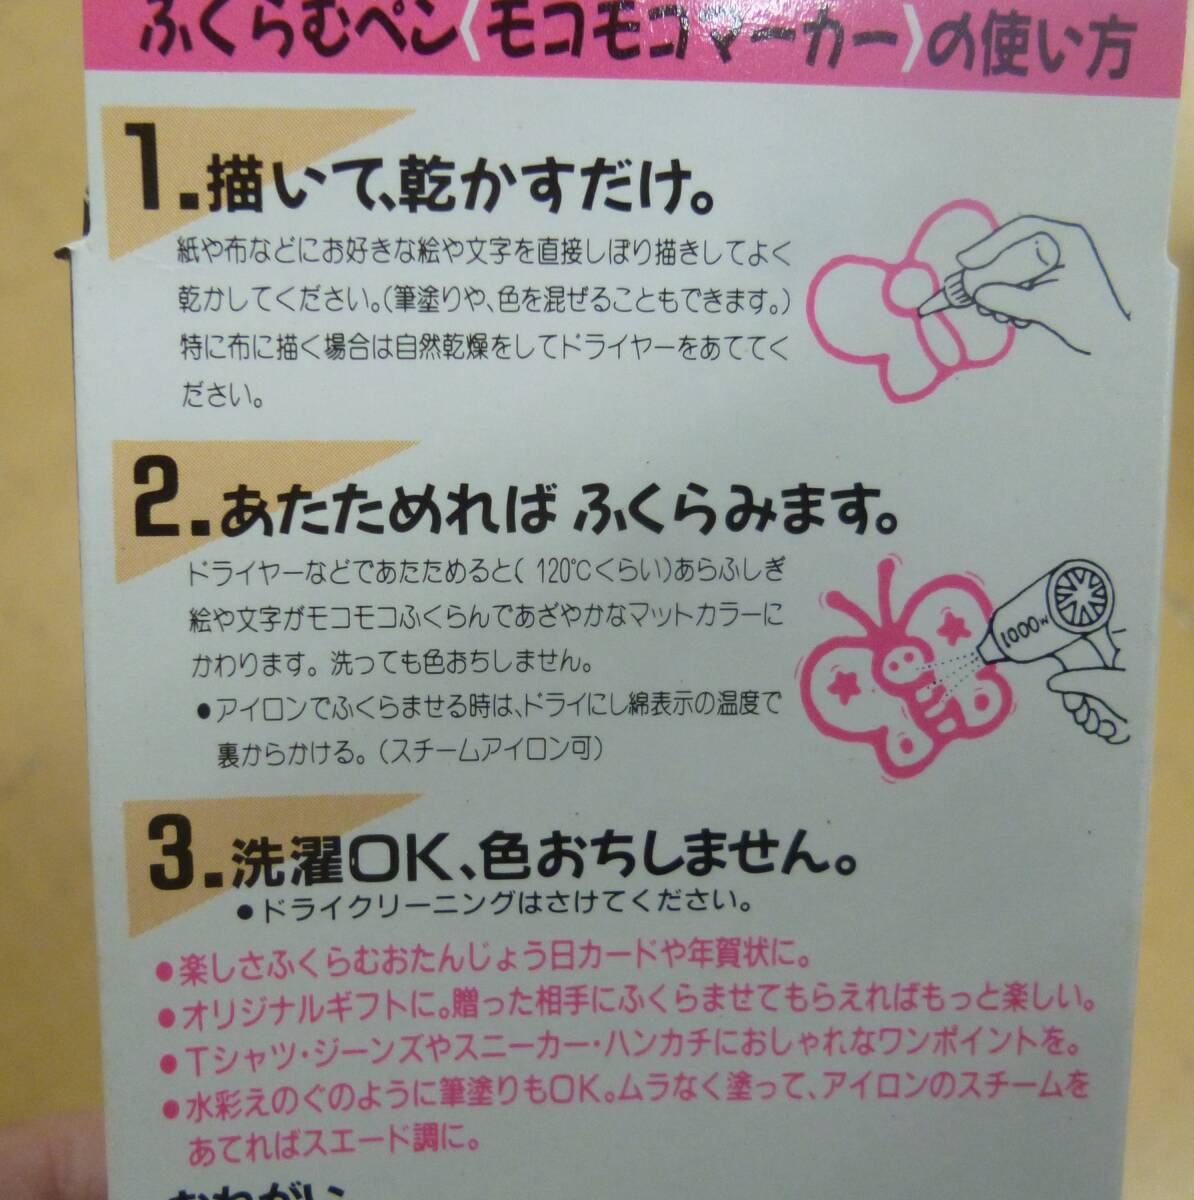 ふくらむペン〈モコモコマーカー〉の使い方
1.描いて、乾かすだけ。
紙や布などにお好きな絵や文字を直接しぼり描きしてよく
乾かしてください。(筆塗りや、色を混ぜることもできます。)
特に布に描く場合は自然乾燥をしてドライヤーをあててく
ださい。
2.あたためれば ふくらみます。
ドライヤーなどであたためると( 120℃くらい)あらふしぎ
絵や文字がモコモコふくらんであざやかなマットカラーに
かわります。洗っても色おちしません。
●アイロンでふくらませる時は、ドライにし綿表示の温度で
裏からかける。(スチームアイロン可)
1000W
3.洗濯OK、色おちしません。
●ドライクリーニングはさけてください。
●楽しさふくらむおたんじょう日カードや年賀状に。
●オリジナルギフトに。贈った相手にふくらませてもらえればもっと楽しい。
●Tシャツ・ジーンズやスニーカー・ハンカチにおしゃれなワンポイントを。
●水彩えのぐのように筆塗りもOK。ムラなく塗って、アイロンのスチームを
あてればスエード調に。
おねがい